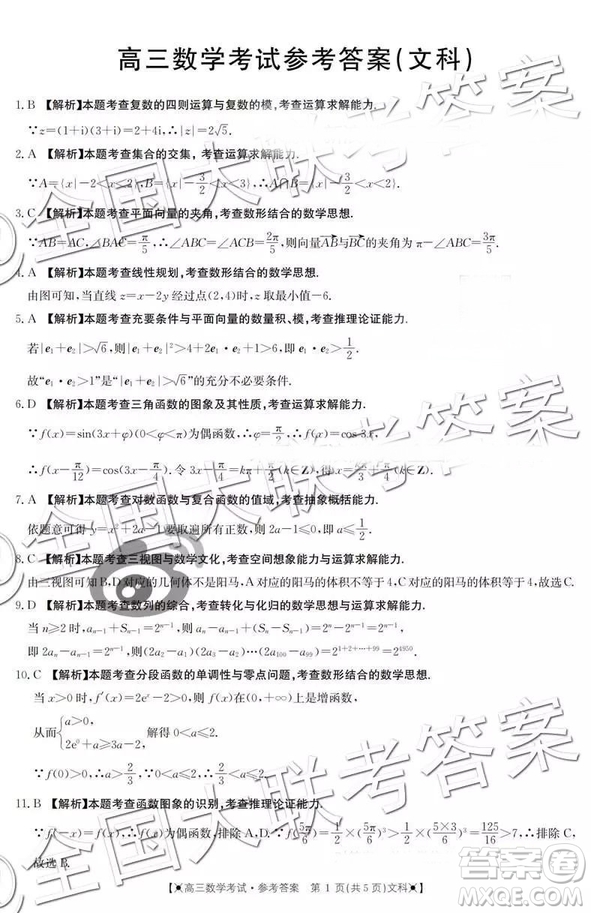 高三数学考试参考答案(文科)
1. B 【解析】本题考查复数的四则运算与复数的模,考查运算求解能力.
∵z=(1+i)(3+i)=2+4i,∴|z|=2√5.
2. A 【解析】本题考查集合的交集,考查运算求解能力.
∵A={x|-2<x<2},B={x|-3/2<x<3},∴A∩B={x|-3/2<x<2}.
3. C 【解析】本题考查平面向量的夹角,考查数形结合的数学思想.
∵AB=AC,∠BAC=π/5,∴∠ABC=∠ACB=2π/5,则向量AB与BC的夹角为π-∠ABC=3π/5.
4. A 【解析】本题考查线性规划,考查数形结合的数学思想.
由图可知,当直线z=x-2y经过点(2,4)时,z取最小值-6.
5. A 【解析】本题考查充要条件与平面向量的数量积、模,考查推理论证能力.
若|e₁+e₂|>√6,则|e₁+e₂|²>4+2e₁·e₂+1>6,即e₁·e₂>1/2.
故“e₁·e₂>1”是“|e₁+e₂|>√6”的充分不必要条件.
6. D 【解析】本题考查三角函数的图象及其性质,考查运算求解能力.
∵f(x)=sin(3x+φ)(0<φ<π)为偶函数,∴φ=π/2,∴f(x)=cos 3x,
∴f(x-π/12)=cos(3x-π/4).令3x-π/4=kπ(k∈Z),得x=π/12+kπ/3(k∈Z).
7. A 【解析】本题考查对数函数与复合函数的值域,考查抽象概括能力.
依题意可得y=x²+2a-1要取遍所有正数,则2a-1≤0,即a≤1/2.
8. C 【解析】本题考查三视图与数学文化,考查空间想象能力与运算求解能力.
由三视图可知B,D对应的几何体不是阳马,A对应的阳马的体积不等于4,C对应的阳马的体积等于4,故选C.
9. D 【解析】本题考查数列的综合,考查转化与化归的数学思想与运算求解能力.
当n≥2时,aₙ₋₁+Sₙ₋₁=2ⁿ⁻¹,则aₙ-aₙ₋₁+Sₙ-Sₙ₋₁=2ⁿ-2ⁿ⁻¹=2ⁿ⁻¹,
即2aₙ-aₙ₋₁=2ⁿ⁻¹,
10. C 【解析】本题考查分段函数的单调性与零点问题,考查数形结合的数学思想.
当x>0时,f′(x)=2eˣ-2>0,则f(x)在(0,+∞)上是增函数,
从而{a>0, 2e⁰+a≥3a, 解得0<a≤2.
11. B 【解析】本题考查函数图象的识别,考查推理论证能力.
∵f(-x)=f(x),∴f(x)为偶函数,排除A,D.
故选B.
高三数学考试·参考答案 第 1 页(共 5 页)文科
全国大联考答案
全国大联考答案
全国大联考答案
MXQE.COM